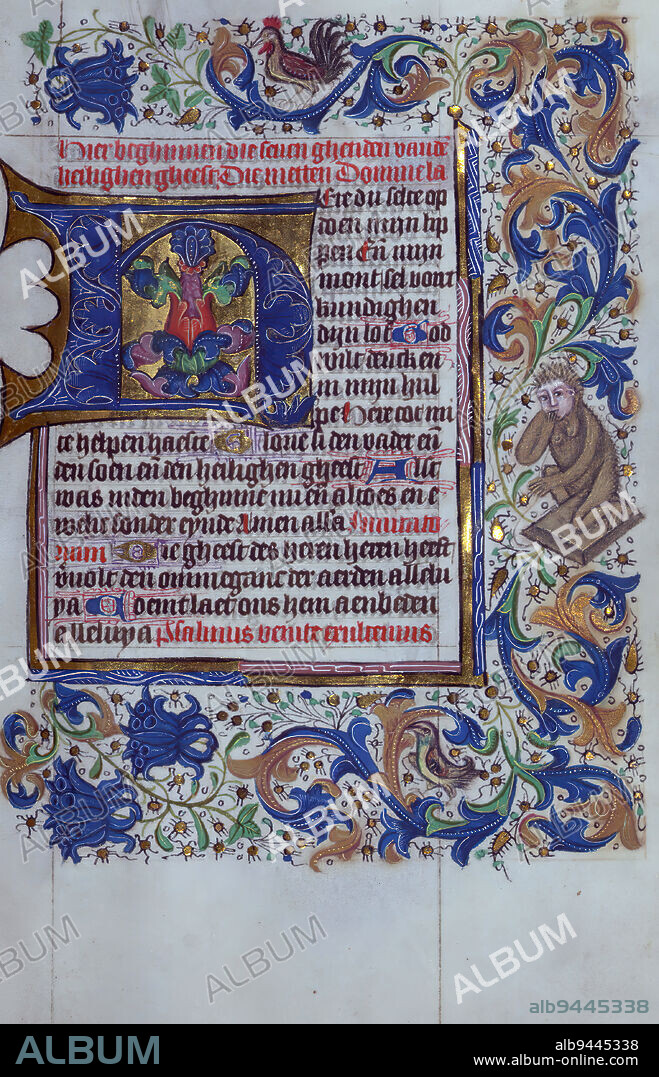 Hier beghinnen die seuen ghetiden vande
heilighen gheest. Die metten Domine la
Ere du selte op
doen mijn lip
pen En mijn
mont sel vout
kundighen
dijn lof God
wilt dencken
in mijn hul
pe Here coemt mi
te helpen haeste Glorie si den vader en
den soen en den heilighen gheest Alst
was inden beghinne nu en altoes en e
welic sonder eynde Amen alla
Die gheest des heren heren heeft
vuolt den ommeganc der aerden allelu
ya Coemt laet ons hem aenbeden
elleluya Psalmus venite exultemus
ALBUM
alb9445338
ALBUM
alb9445338
www.album-online.com